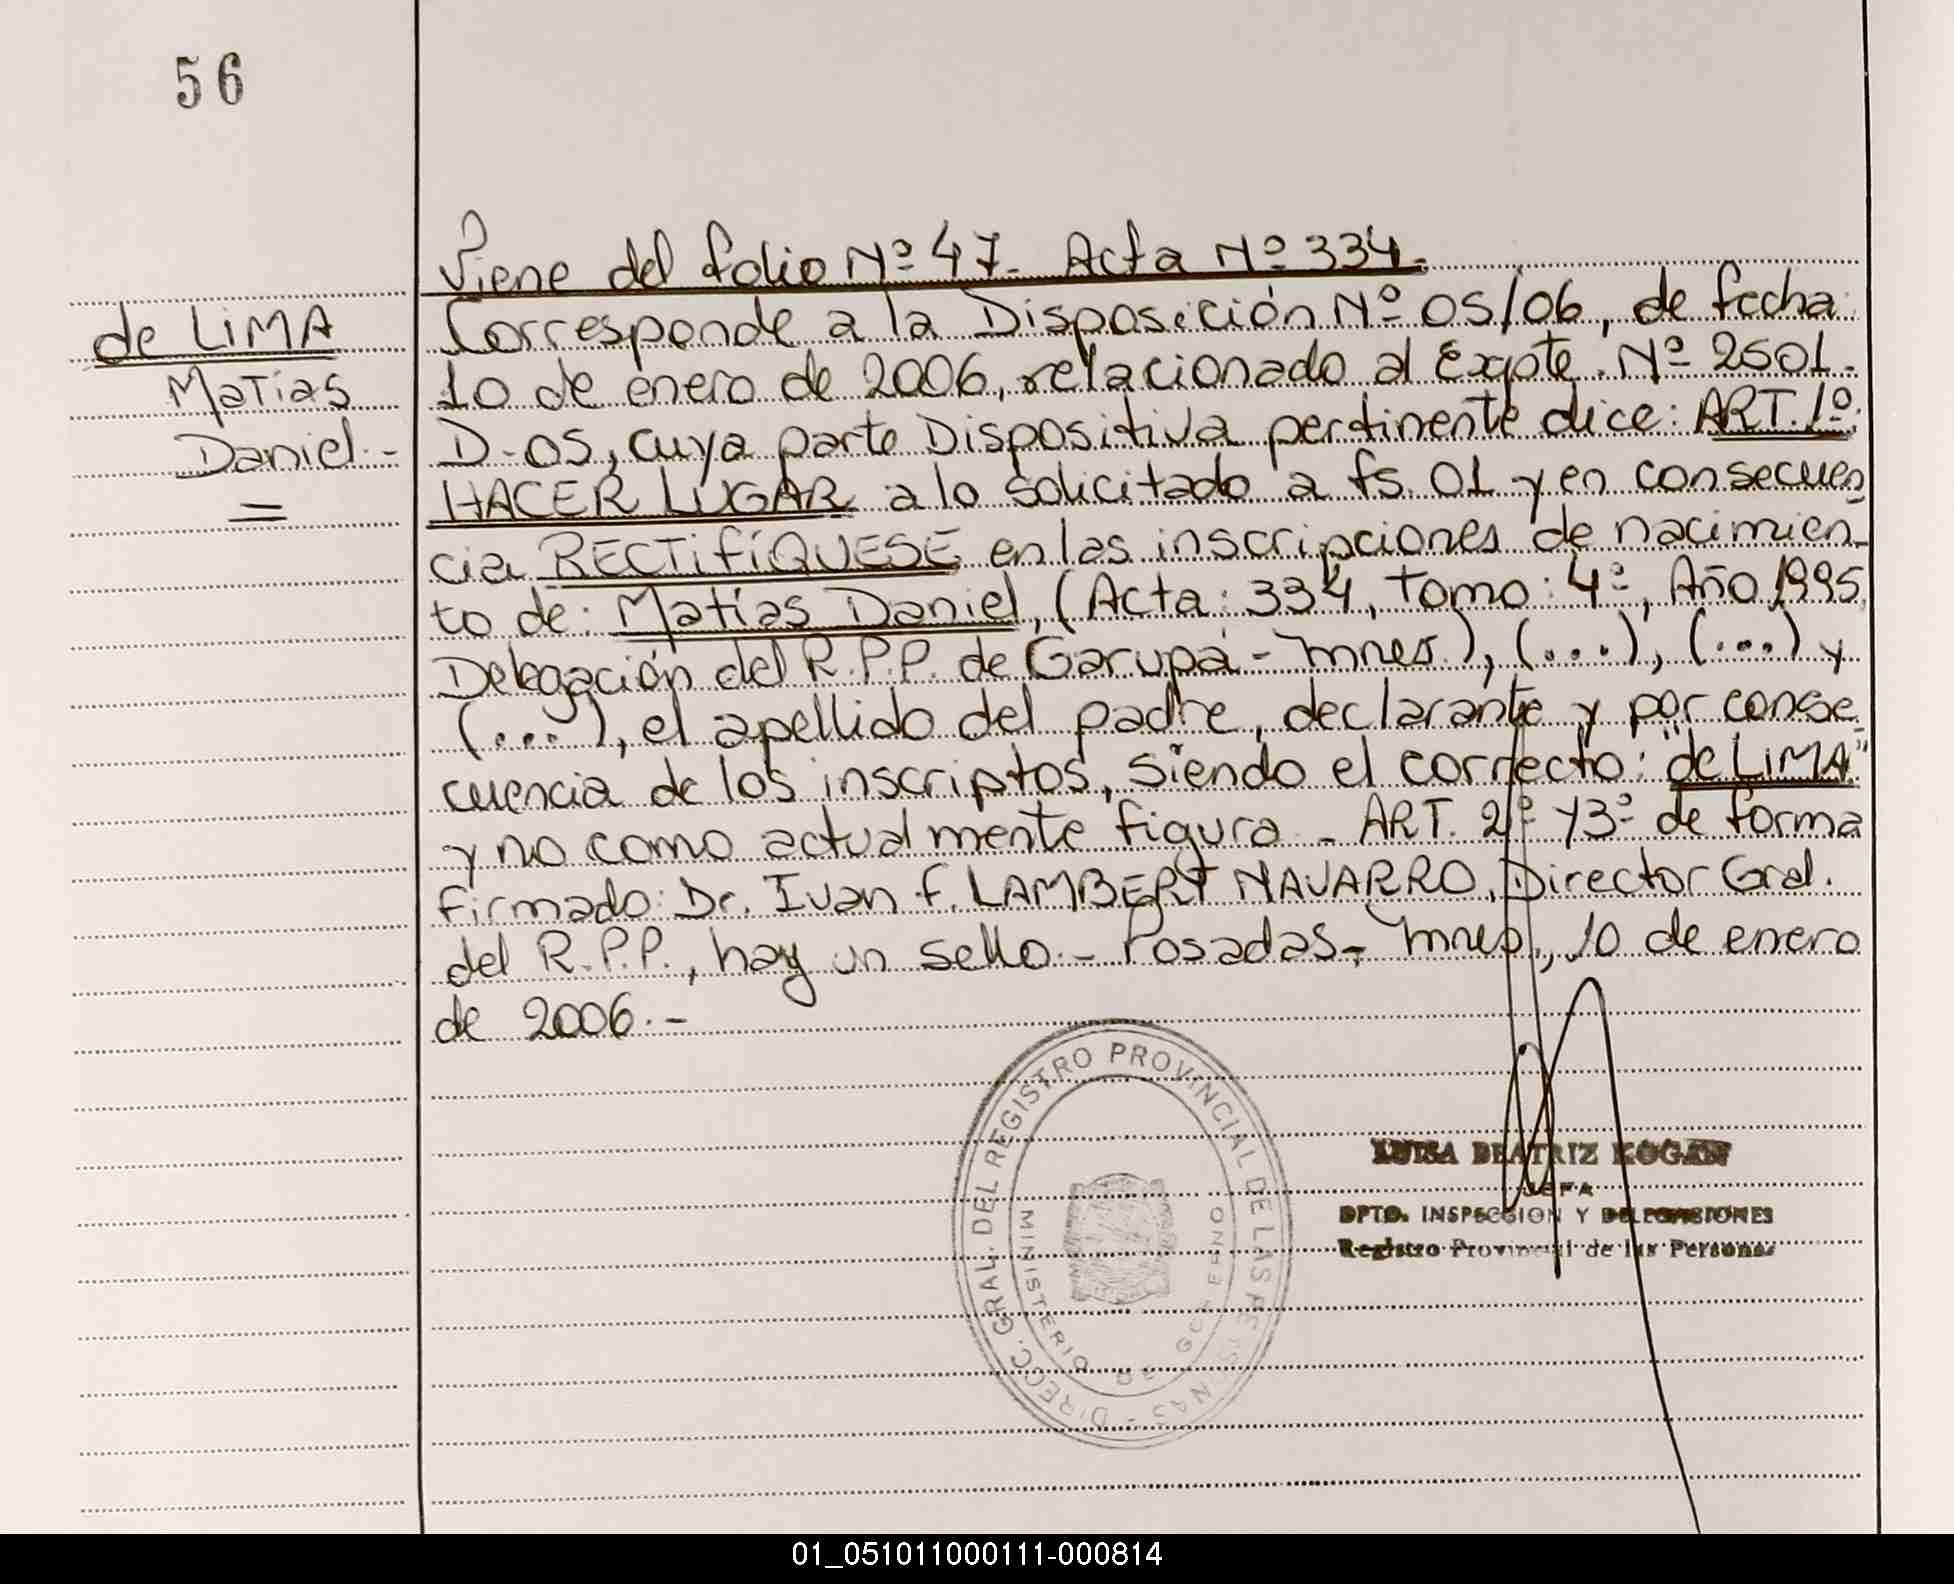 56
de LiMA
Matías
Daniel.-
=
Viene del folio Nº 47- Acta Nº 334.
Corresponde a la Disposición Nº 05/06, de fecha
10 de enero de 2006, relacionado al Expte. Nº 2501-
D-05, cuya parte Dispositiva pertinente dice: ART. 1º:
HACER LUGAR a lo solicitado a fs. 01 y en consecuen
cia RECTIFÍQUESE en las inscripciones de nacimien-
to de: Matías Daniel, (Acta: 334, Tomo: 4º, Año 1995,
Delegación del R.P.P. de Garupá - Mnes.), (...), (...) y
(...), el apellido del padre, declarante y por conse
cuencia de los inscriptos, siendo el correcto: "de LiMA"
y no como actualmente figura - ART. 2º y 3º de forma
firmado: Dr. Ivan F. LAMBERT NAVARRO, Director Gral.
del R.P.P., hay un sello.- Posadas, Mnes., 10 de enero
de 2006.-
DIRECC. GRAL. DEL REGISTRO PROVINCIAL DE LAS PERSONAS -
MINISTERIO DE GOBIERNO
LUISA BEATRIZ KOGAN
JEFA
DPTO. INSPECCION Y DELEGACIONES
Registro Provincial de las Personas
01_051011000111-000814